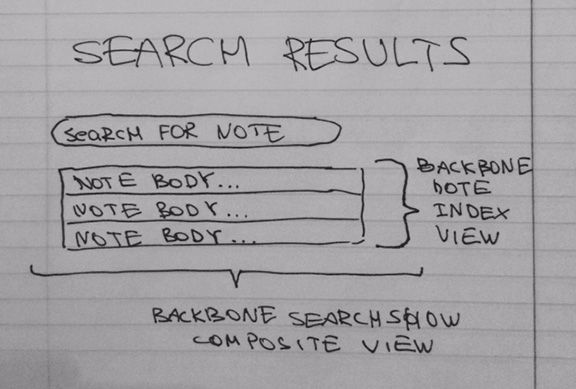 SEARCH RESULTS
SEARCH FOR NOTE
NOTE BODY...
NOTE BODY...
NOTE BODY...
BACKBONE
NOTE
INDEX
VIEW
BACKBONE SEARCHSHOW
COMPOSITE VIEW